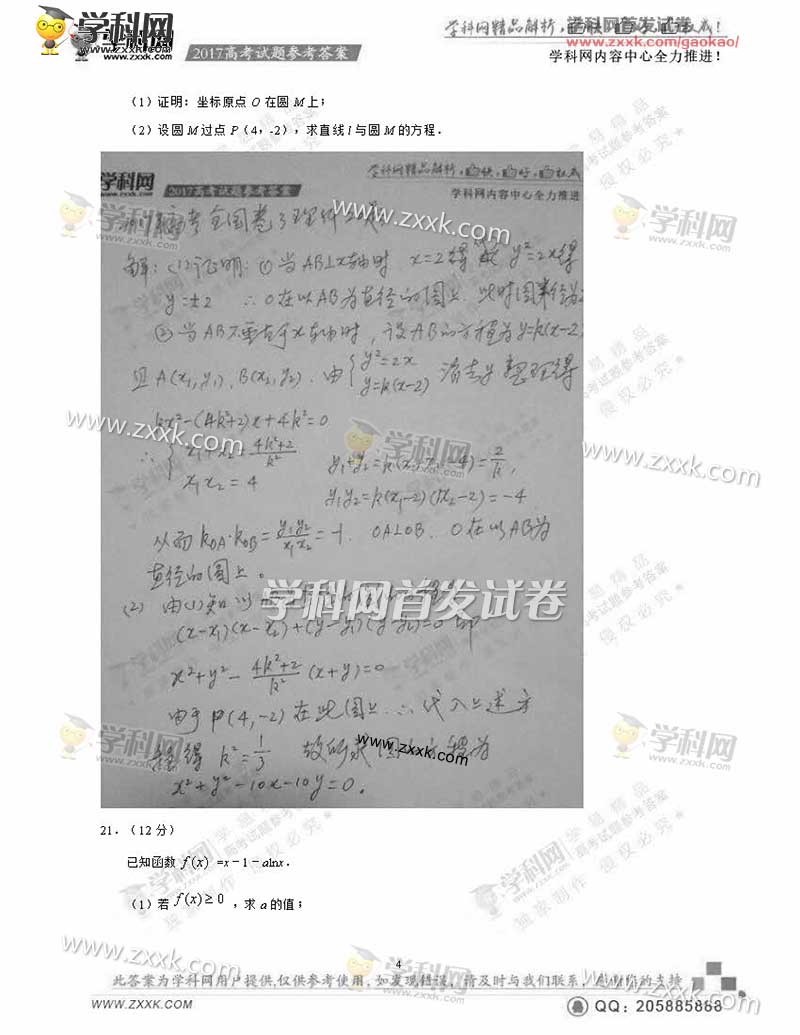 学科网
www.zxxk.com
2017高考试题参考答案
学科网精品解析，
学科网首发试卷
www.zxxk.com/gaokao/
学科网内容中心全力推进！
（1）证明：坐标原点 O 在圆 M 上；
（2）设圆 M 过点 P（4，-2），求直线 l 与圆 M 的方程．
学科网
2017高考试题参考答案
学科网精品解析，
学科网内容中心全力推进
www.zxxk.com
解：(1)证明：①当AB⊥x轴时 x=2 y²=2x得
y=±2 ∴O在以AB为直径的圆上 此时圆
②当AB不垂直于x轴时，设AB的方程为y=k(x-2
且A(x₁,y₁),B(x₂,y₂)．由{y²=2x
y=k(x-2) 消去y整理得
www.zxxk.com
k²x²-(4k²+2)x+4k²=0
∴{x₁+x₂=4k²+2/k²
x₁x₂=4
学科网
www.zxxk.com
y₁+y₂=k(x₁+x₂-4)=2/k,
y₁y₂=k(x₁-2)(x₂-2)=-4
从而 kOA·kOB=y₁y₂/x₁x₂=-1. OA⊥OB. O在以AB为
直径的圆上。
学科网首发试卷
(2) 由(1)知以
(x-x₁)(x-x₂)+(y-y₁)(y-y₂)=0 即
x²+y²-4k²+2/k²(x+y)=0
由于P(4,-2)在此圆上∴代入上述方
程得 k²=1/3 故所求圆的方程为
www.zxxk.com
x²+y²-10x-10y=0.
21．（12 分）
已知函数 f(x) =x﹣1﹣alnx．
（1）若 f(x)≥0 ，求 a 的值；
学科网
www.zxxk.com
4
此答案为学科网用户提供,仅供参考使用,如发现错误，请及时与我们联系，感谢你的支持
WWW.ZXXK.COM
QQ：205885868